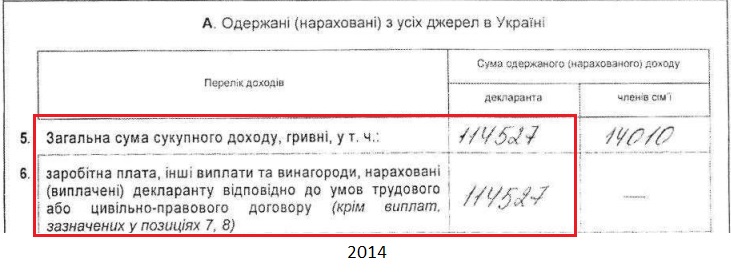 А. Одержані (нараховані) з усіх джерел в Україні
Перелік доходів
Сума одержаного (нарахованого) доходу
декларанта
членів сім'ї
5. Загальна сума сукупного доходу, гривні, у т. ч.: 114527 14010
6. заробітна плата, інші виплати та винагороди, нараховані
(виплачені) декларанту відповідно до умов трудового
або цивільно-правового договору (крім виплат,
зазначених у позиціях 7, 8)
114527 —
2014